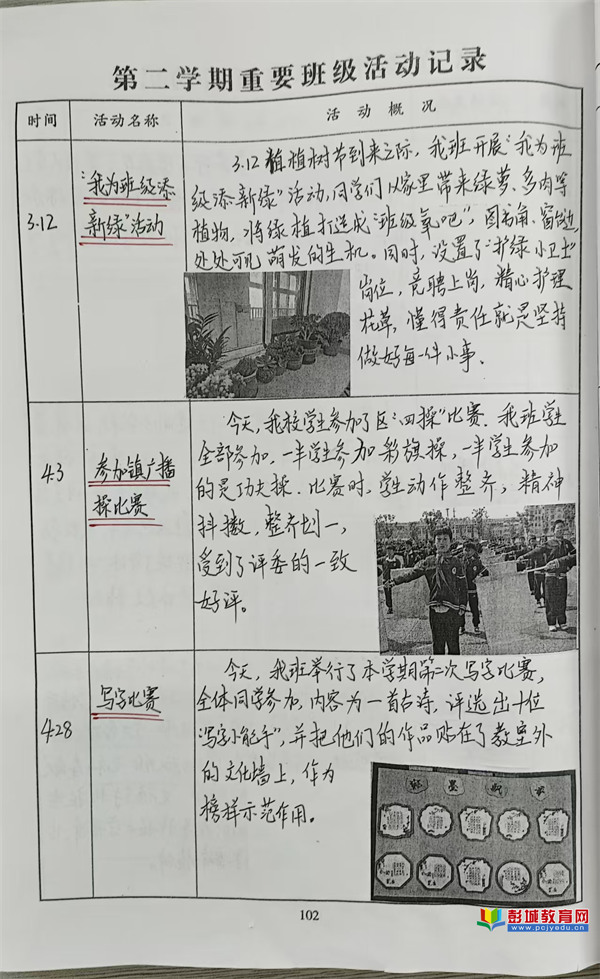 第二学期重要班级活动记录
时间
活动名称
活动概况
3.12
"我为班级添
新绿"活动
3.12植植树节到来之际，我班开展"我为班
级添新绿"活动，同学们从家里带来绿萝、多肉等
植物，将绿植打造成"班级氧吧"，图书角、窗台边，
处处可见萌发的生机。同时，设置了"护绿小卫士"
岗位，竞聘上岗，精心护理
花草，懂得责任就是坚持
做好每一件小事、
4.3
参加镇广播
操比赛
今天，我校学生参加了区"四操"比赛．我班学生
全部参加，一半学生参加彩旗操，一半学生参加
的是功夫操．比赛时，学生动作整齐，精神
抖擞，整齐划一，
受到了评委的一致
好评。
4.28
写字比赛
今天，我班举行了本学期第二次写字比赛，
全体同学参加，内容为一首古诗，评选出十位
"写字小能手"，并把他们的作品贴在了教室外
的文化墙上，作为
榜样示范作用。
102
彭城教育网
www.pcjyedu.cn